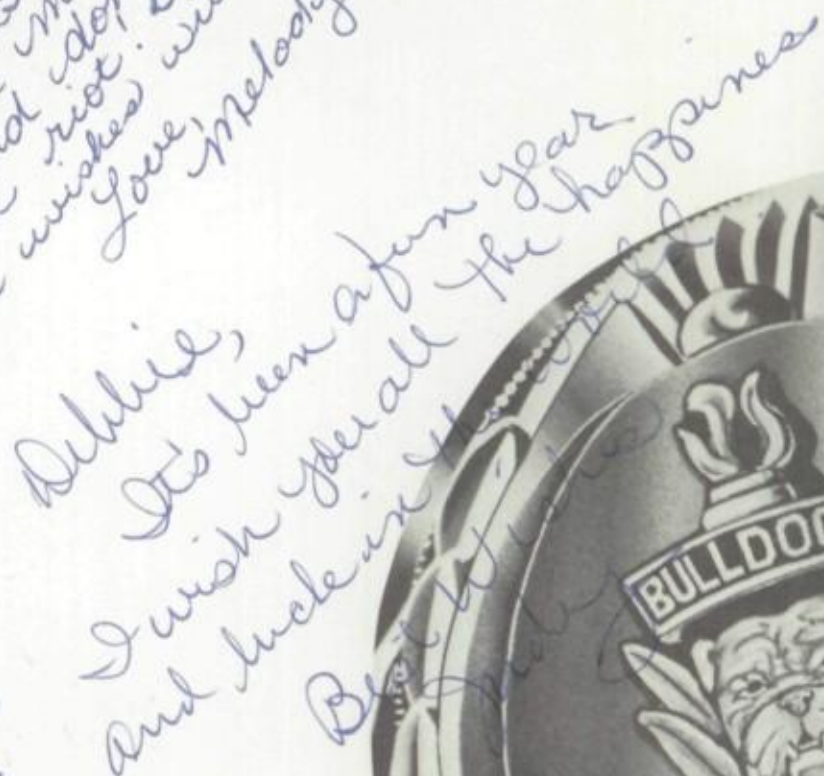 riot.
wishes
Love,
Melody
Debbie,
It's been a fun year
I wish you all the happines
and luck in the world
Best Wishes
BULLDO